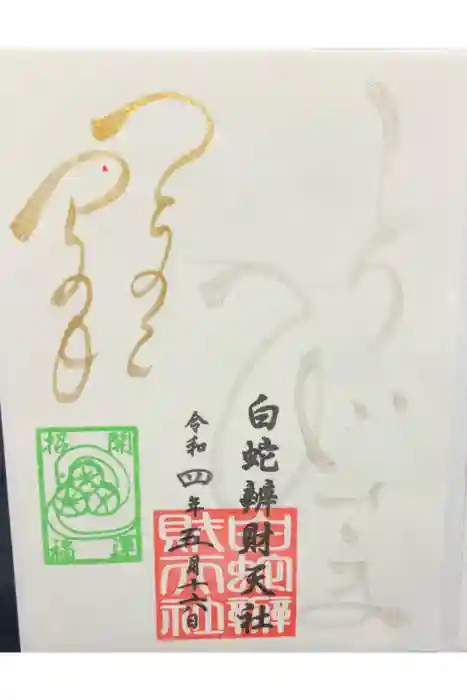 しろへびさま
白蛇辨財天社
令和四年五月十六日
白蛇辨
財天社
開運
招福